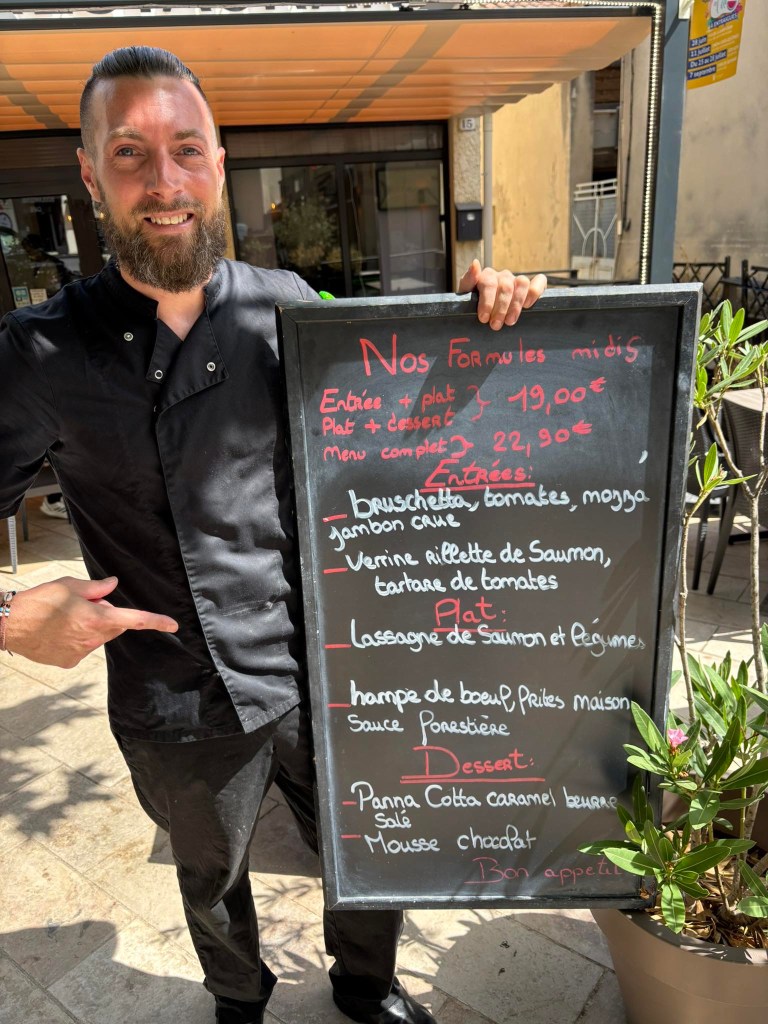 28 juin
11 juillet
7 septembre
15
Nos Formules midis
Entrée + plat } 19,00€
Plat + dessert
Menu complet } 22,90€
Entrées:
_ bruschetta, tomates, mozza
jambon crue
_ Verrine rillette de Saumon,
tartare de tomates
Plat:
_ Lassagne de Saumon et légumes
_ hampe de boeuf, frites maison
Sauce forestière
Dessert:
_ Panna Cotta caramel beurre
salé
_ Mousse chocolat
Bon appetit